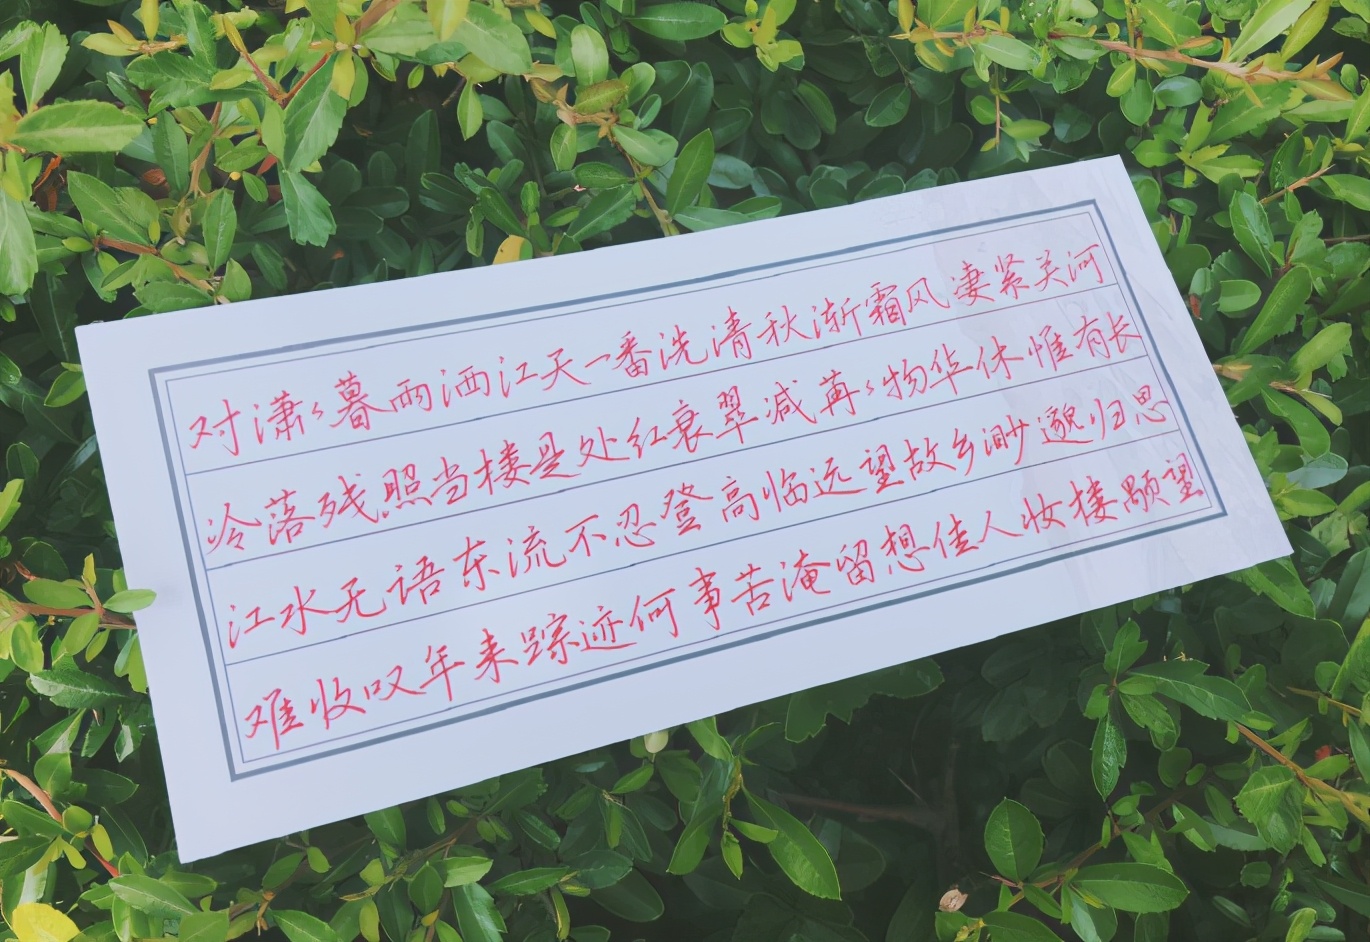 对潇々暮雨洒江天一番洗清秋渐霜风凄紧关河
冷落残照当楼是处红衰翠减苒々物华休惟有长
江水无语东流不忍登高临远望故乡渺邈归思
难收叹年来踪迹何事苦淹留想佳人妆楼颙望